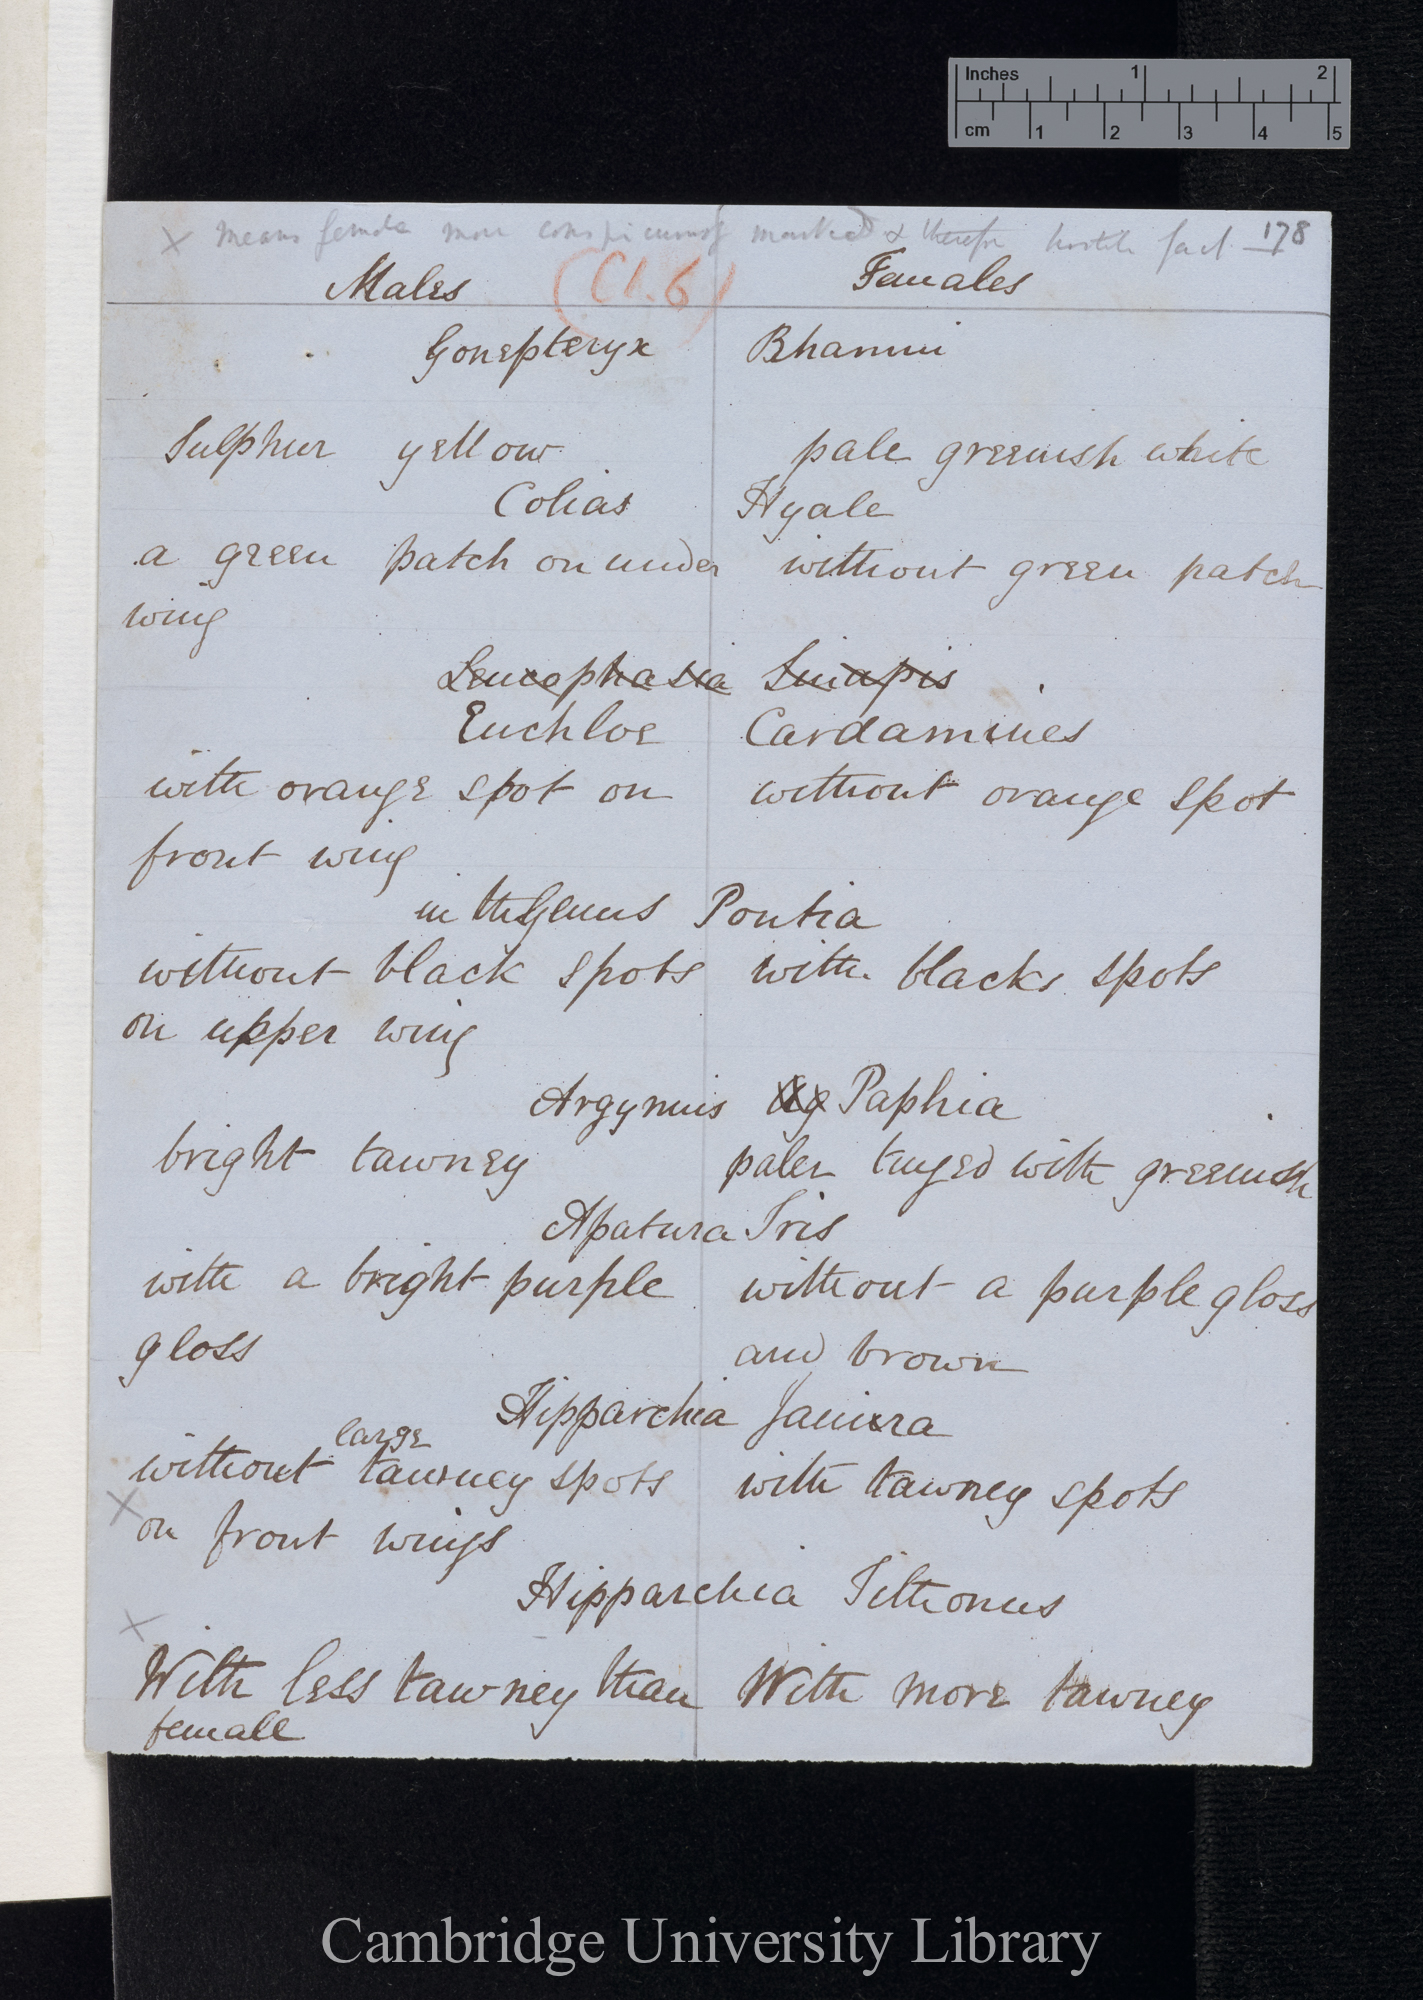 Inches 1 2
cm 1 2 3 4 5
178
X means female more conspicuously marked & therefore hostile fact
Males (Ch. 6) Females
Gonepteryx Rhamni
Sulphur yellow pale greenish white
Colias Hyale
a green patch on under without green patch
wing
Leucophasia Sinapis
Euchloe Cardamines
with orange spot on without orange spot
front wing
in the Genus Pontia
without black spots with blacks spots
on upper wing
Argynnis Ag Paphia
bright tawney paler tinged with greenish
Apatura Iris
with a bright purple without a purple gloss
gloss and brown
Hipparchia Janira
large
without tawney spots with tawney spots
X
on front wings
Hipparchia Tithonus
X
With less tawney than With more tawney
female
Cambridge University Library